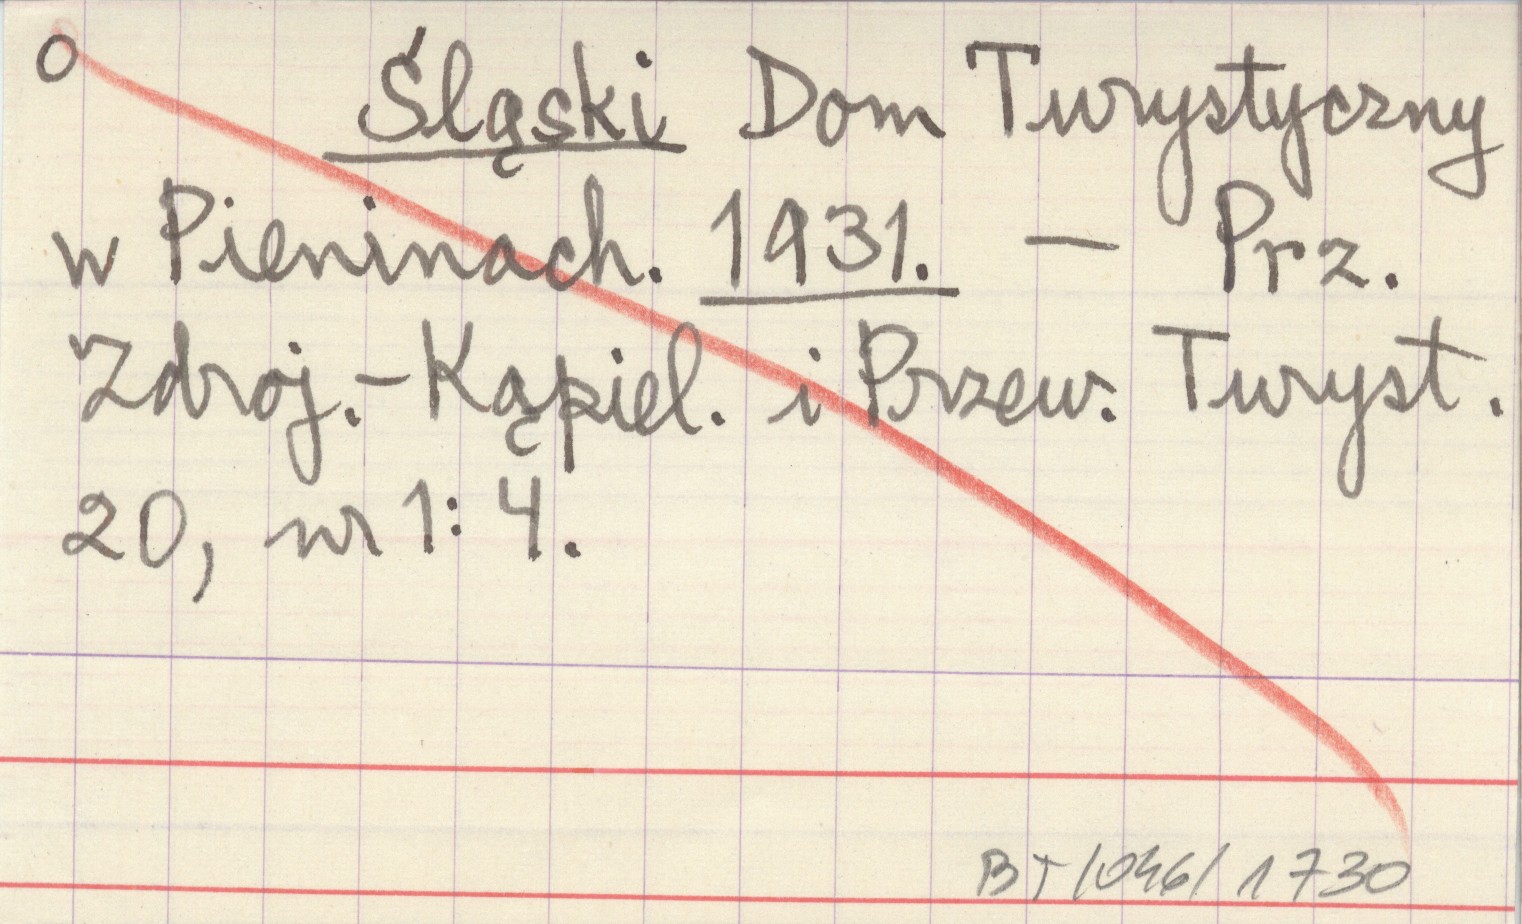 o Śląski Dom Turystyczny
w Pieninach. 1931. – Prz.
Zdroj.-Kąpiel. i Przew. Turyst.
20, nr 1: 4.
BT/046/1730